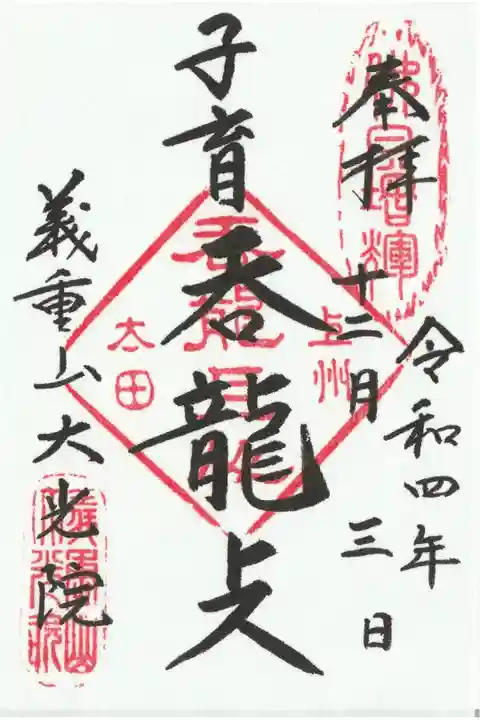 奉拝
令和四年
十二月
三日
子育呑龍上人
上州
太田
義重山大光院